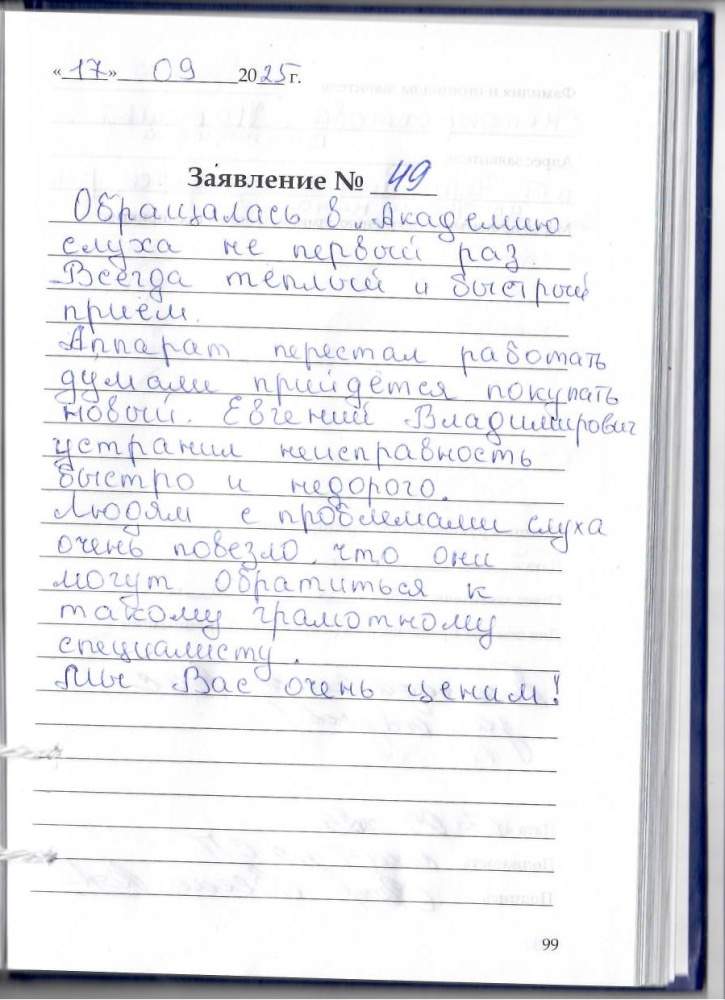 «17» 09 2025 г.
Заявление № 49
Обращалась в „Академию
слуха не первый раз
Всегда тёплый и быстрый
приём.
Аппарат перестал работать
думали прийдётся покупать
новый. Евгений Владимирович
устранил неисправность
быстро и недорого.
Людям с проблемами слуха
очень повезло, что они
могут обратиться к
такому грамотному
специалисту.
Мы Вас очень ценим!
99